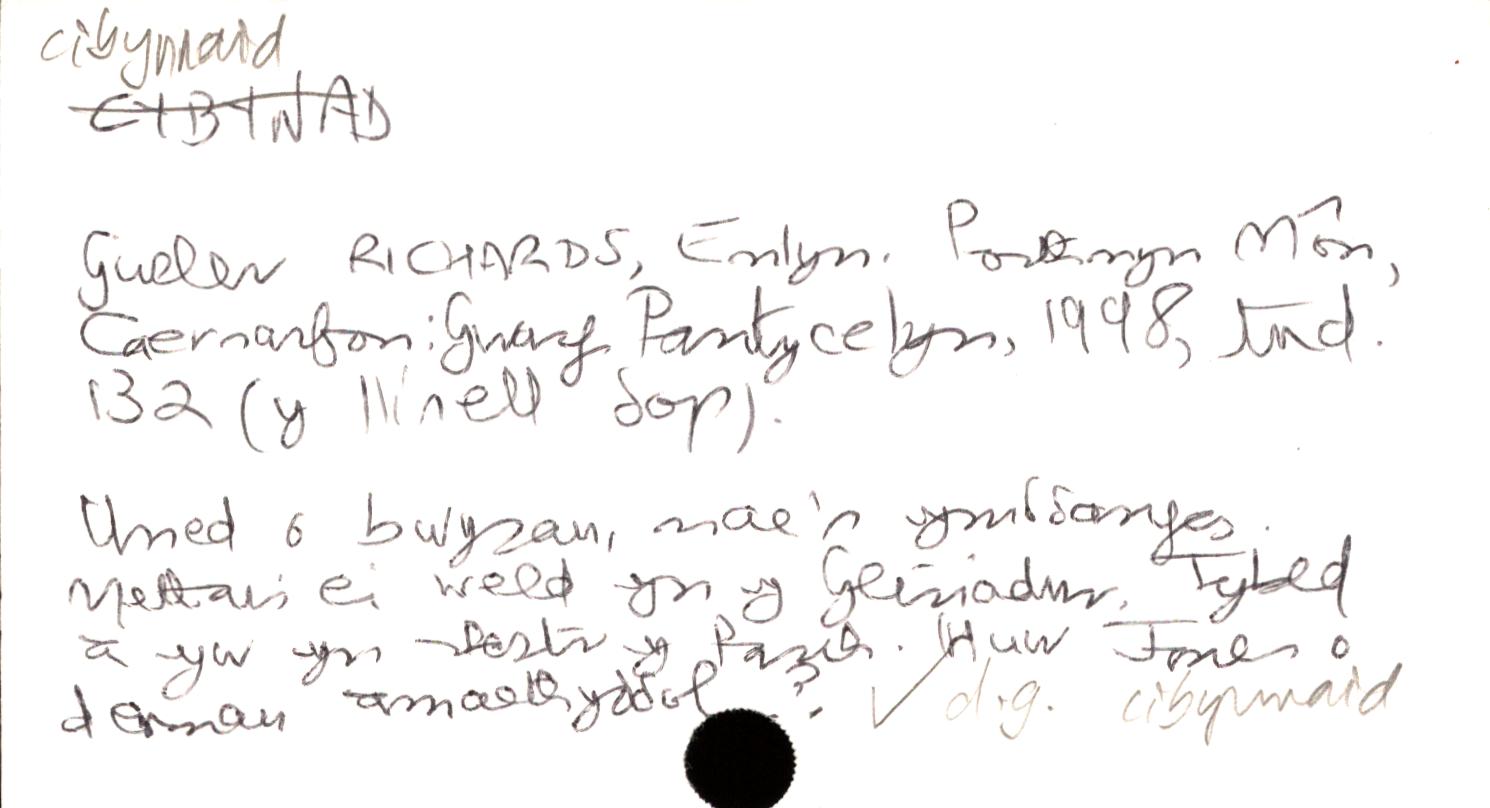 cibynnaid
CIBINAD
Gweler RICHARDS, Emlyn. Porthmyn Môn,
Caernarfon: Gwasg Pantycelyn, 1998, tud.
132 (y llinell dop).
Uned o bwysau, mae'n ymddangos.
Methais ei weld yn y Geiriadur. Tybed
a yw yn restr y Parch. Huw Jones o
dermau amaethyddol ..? ✓ d.g. cibynnaid